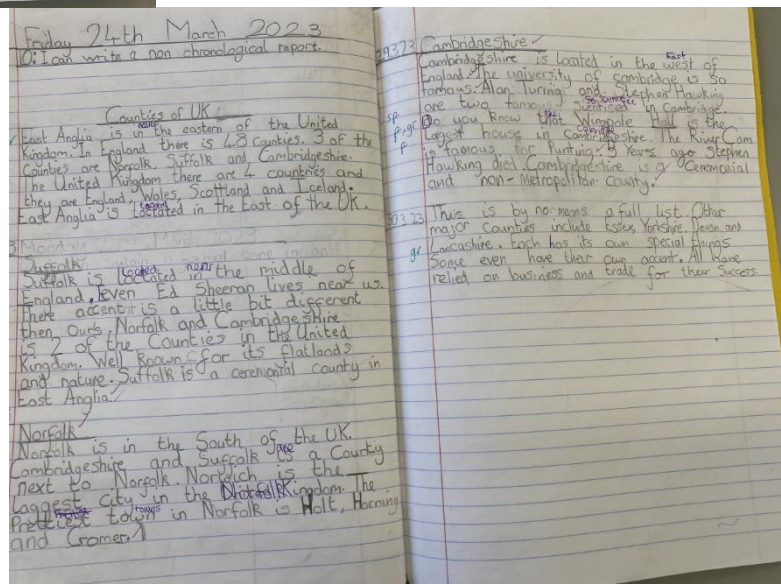 Friday 24th March 2023
LO: I can write a non chronological report.
Counties of UK
near
East Anglia is in the eastern of the United
Kingdom. In England there is 48 counties. 3 of the
Counties are Norfolk, Suffolk and Cambridgeshire.
The United Kingdom there are 4 countries and
they are England, Wales, Scottland and Iceland.
East Anglia is Loctated in the East of the UK.
Suffolk
Located near
Suffolk is Loctated in the middle of
England. Even Ed Sheeran lives near us.
There accent is a little bit different
then ours. Norfolk and Cambridgeshire
is 2 of the Counties in the United
Kingdom. Well Known for its flatlands
and nature. Suffolk is a ceremonial county in
East Anglia.
Norfolk
Norfolk is in the South of the UK.
are
Cambridgeshire and Suffolk is a County
next to Norfolk. Norwich is the
Laggest City in the Kingdom. The
Prettiest town in Norfolk is Holt, Horning
and Cromer.
29 3 23 Cambridgeshire
East
Cambridgeshire is Located in the west of
England. The university of cambridge is so
famous. Alan Turing and Stephen Hawking
are two famous in Cambridge.
sp
Do you know that Wimpole Hall is the
gr
Largest house in Cambridgeshire. The River Cam
f
is famous for Punting. 3 Years ago Stephen
Hawking died. Cambridgeshire is a Ceremonial
and non-Metropolitan County.
30 3 23 This is by no means a full list. Other
major Counties include Essex, Yorkshire, Devon and
gr Lancashire. Each has its own special things
Some even have their own accent. All have
relied on business and trade for their success.